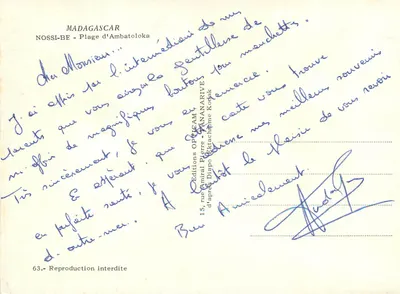 MADAGASCAR
NOSSI-BE - Plage d'Ambatoloka
Cher Monsieur...
J'ai appris par l'intermédiaire de mes
parents que vous aviez la gentillesse de
m'offrir de magnifiques boutons pour manchettes.
Très sincèrement, je vous en remercie.
Et espérant que cette carte vous trouve
en parfaite santé, je vous adresse mes meilleurs souvenirs
d'outre-mer. A bientôt le plaisir de vous revoir
Bien Amicalement.
Editions OPTICAM
15, rue Amiral Pierre - TANANARIVE
d'après Diapo Ektachrome Kodak
63.- Reproduction interdite